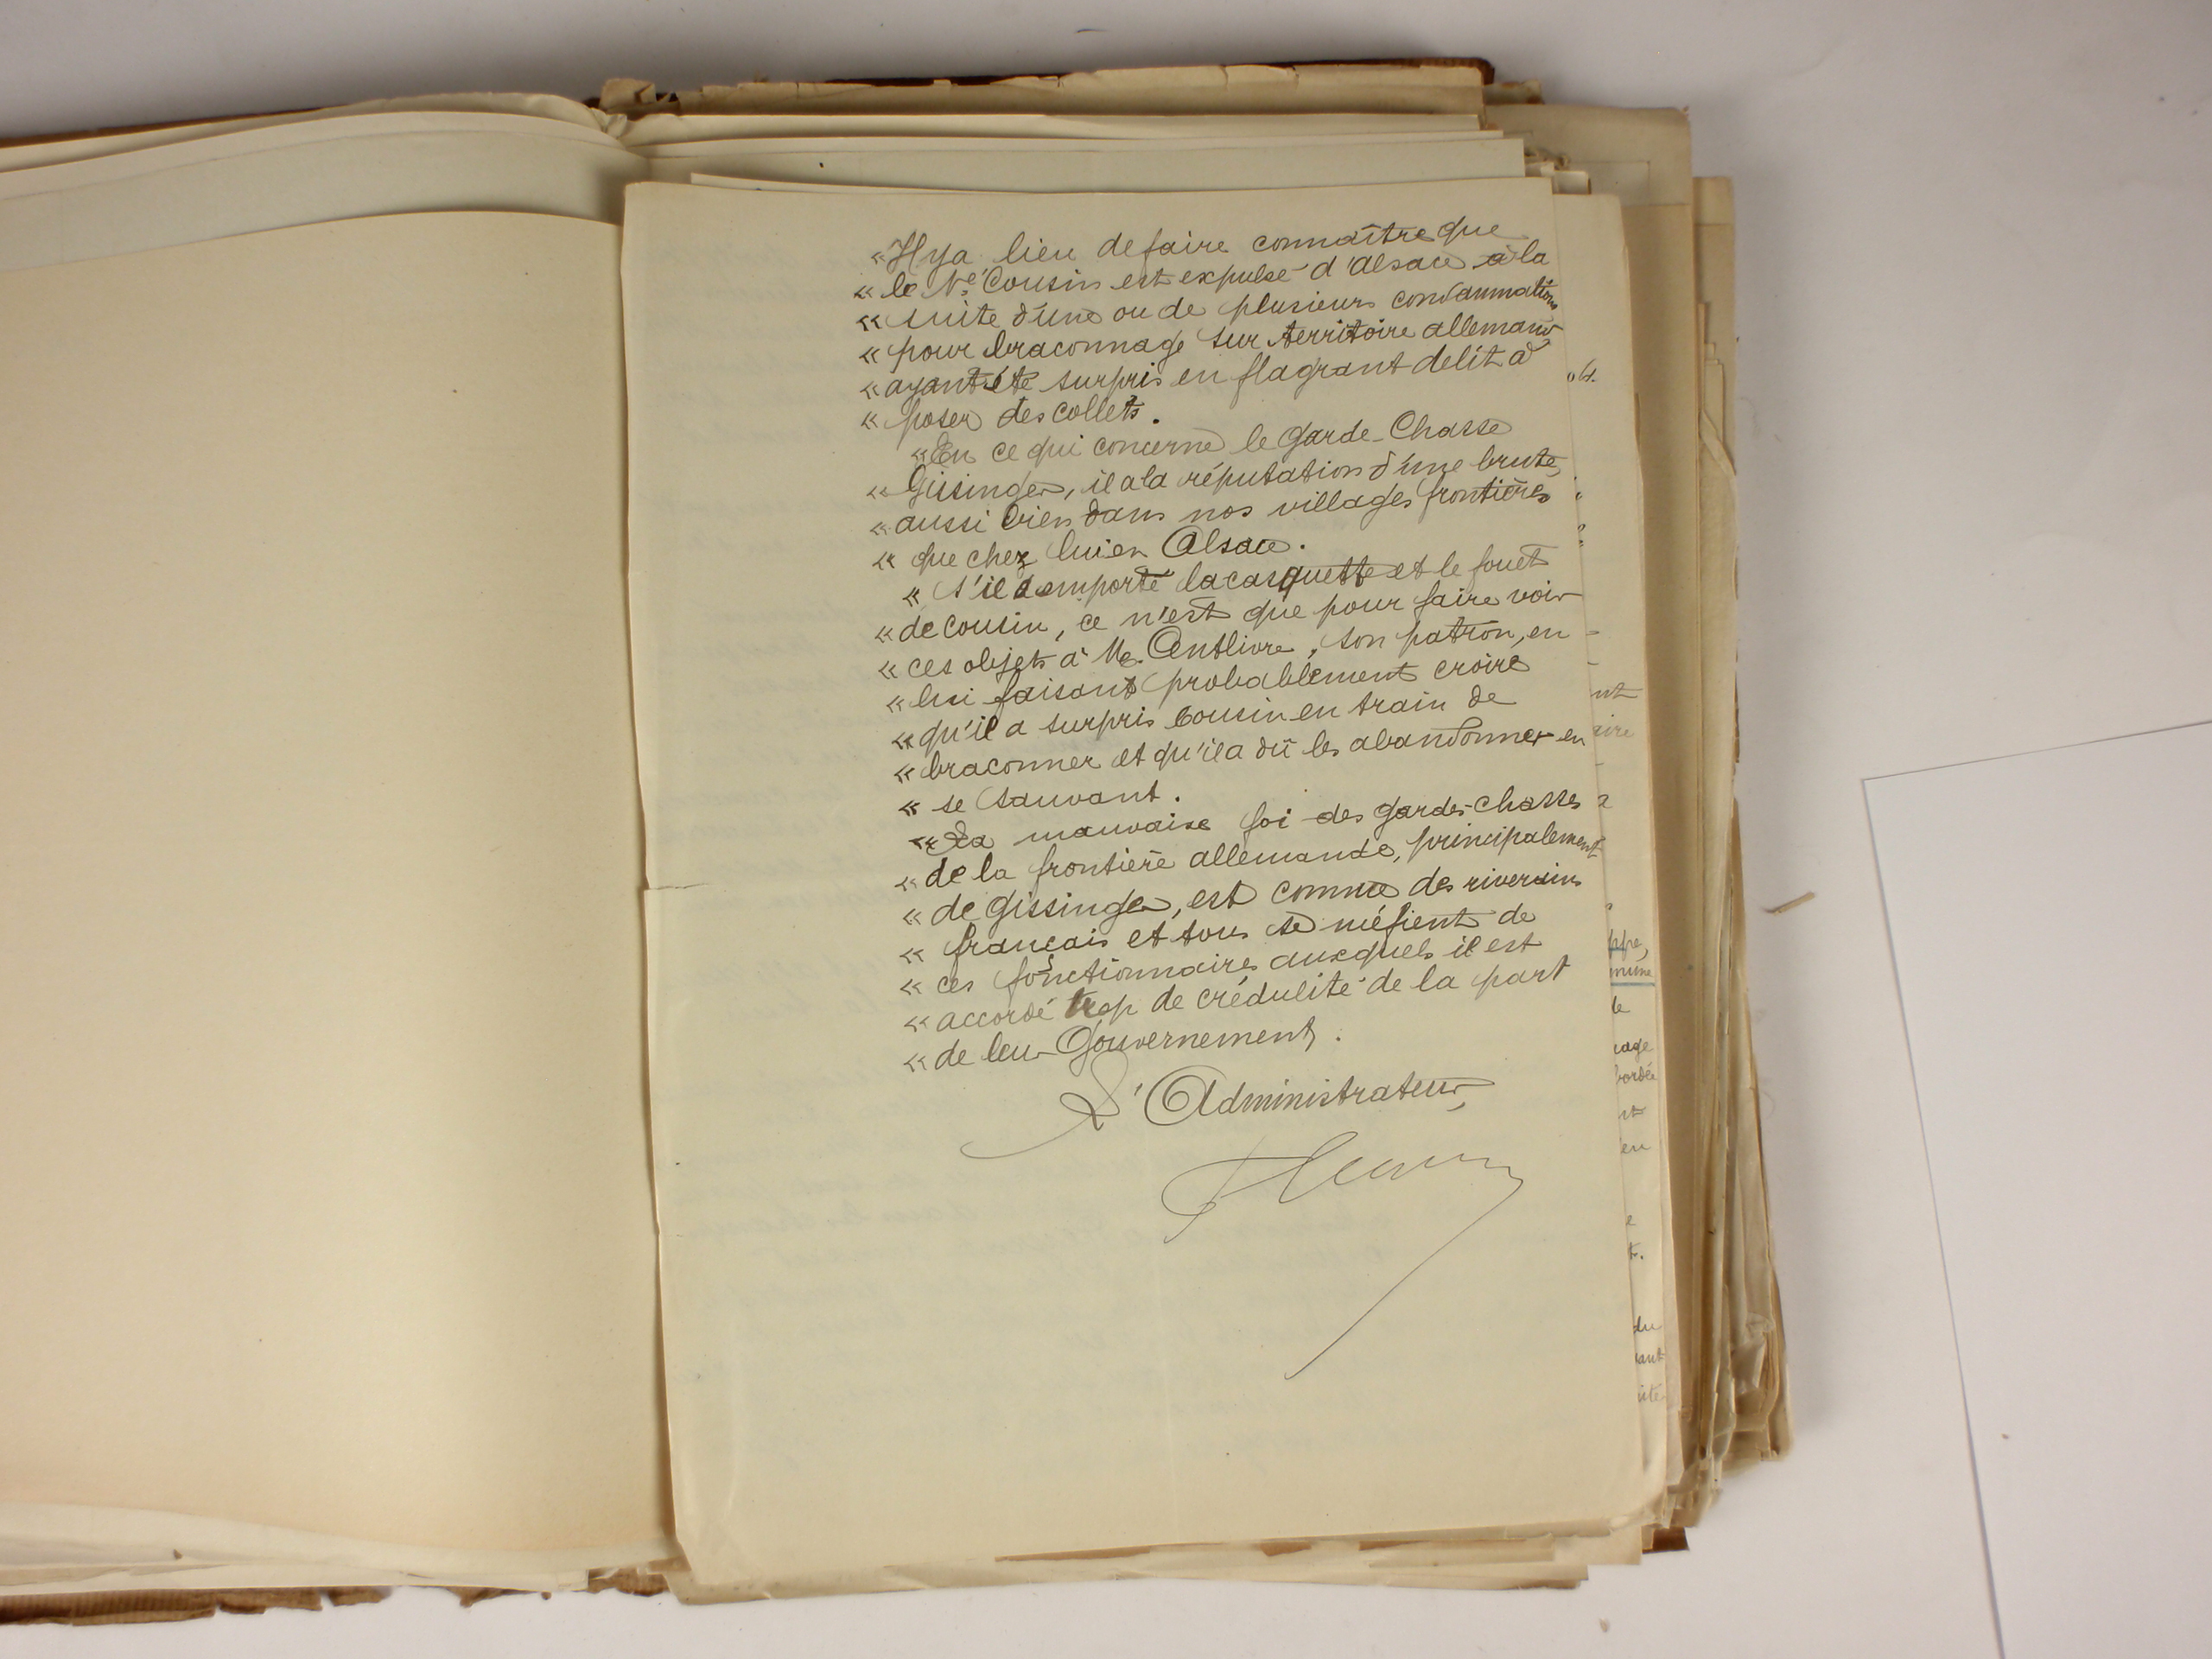 « Il y a lieu de faire connaître que
« le Né Cousin est expulsé d'Alsace à la
« suite d'une ou de plusieurs condamnations
« pour braconnage sur territoire allemand
« ayant été surpris en flagrant delit à
« poser des collets.
« En ce qui concerne le Garde-Chasse
« Gissinger, il a la réputation d'une brute,
« aussi bien dans nos villages frontières
« que chez lui en Alsace.
« S'il a emporté la casquette et le fouet
« de Cousin, ce n'est que pour faire voir
« ces objets à Mr. Antlivre, son patron, en
« lui faisant probablement croire
« qu'il a surpris Cousin en train de
« braconner et qu'il a dû les abandonner en
« se sauvant.
« La mauvaise foi des gardes-chasses
« de la frontière allemande, principalement
« de Gissinger, est connue des riverains
« français et tous se méfient de
« ces fonctionnaires auxquels il est
« accordé trop de crédulité de la part
« de leur Gouvernement.
L'Administrateur,
nt
aire
ppe,
mune
le
nage
bordée
nt
en
e
t.
du
ant
ité